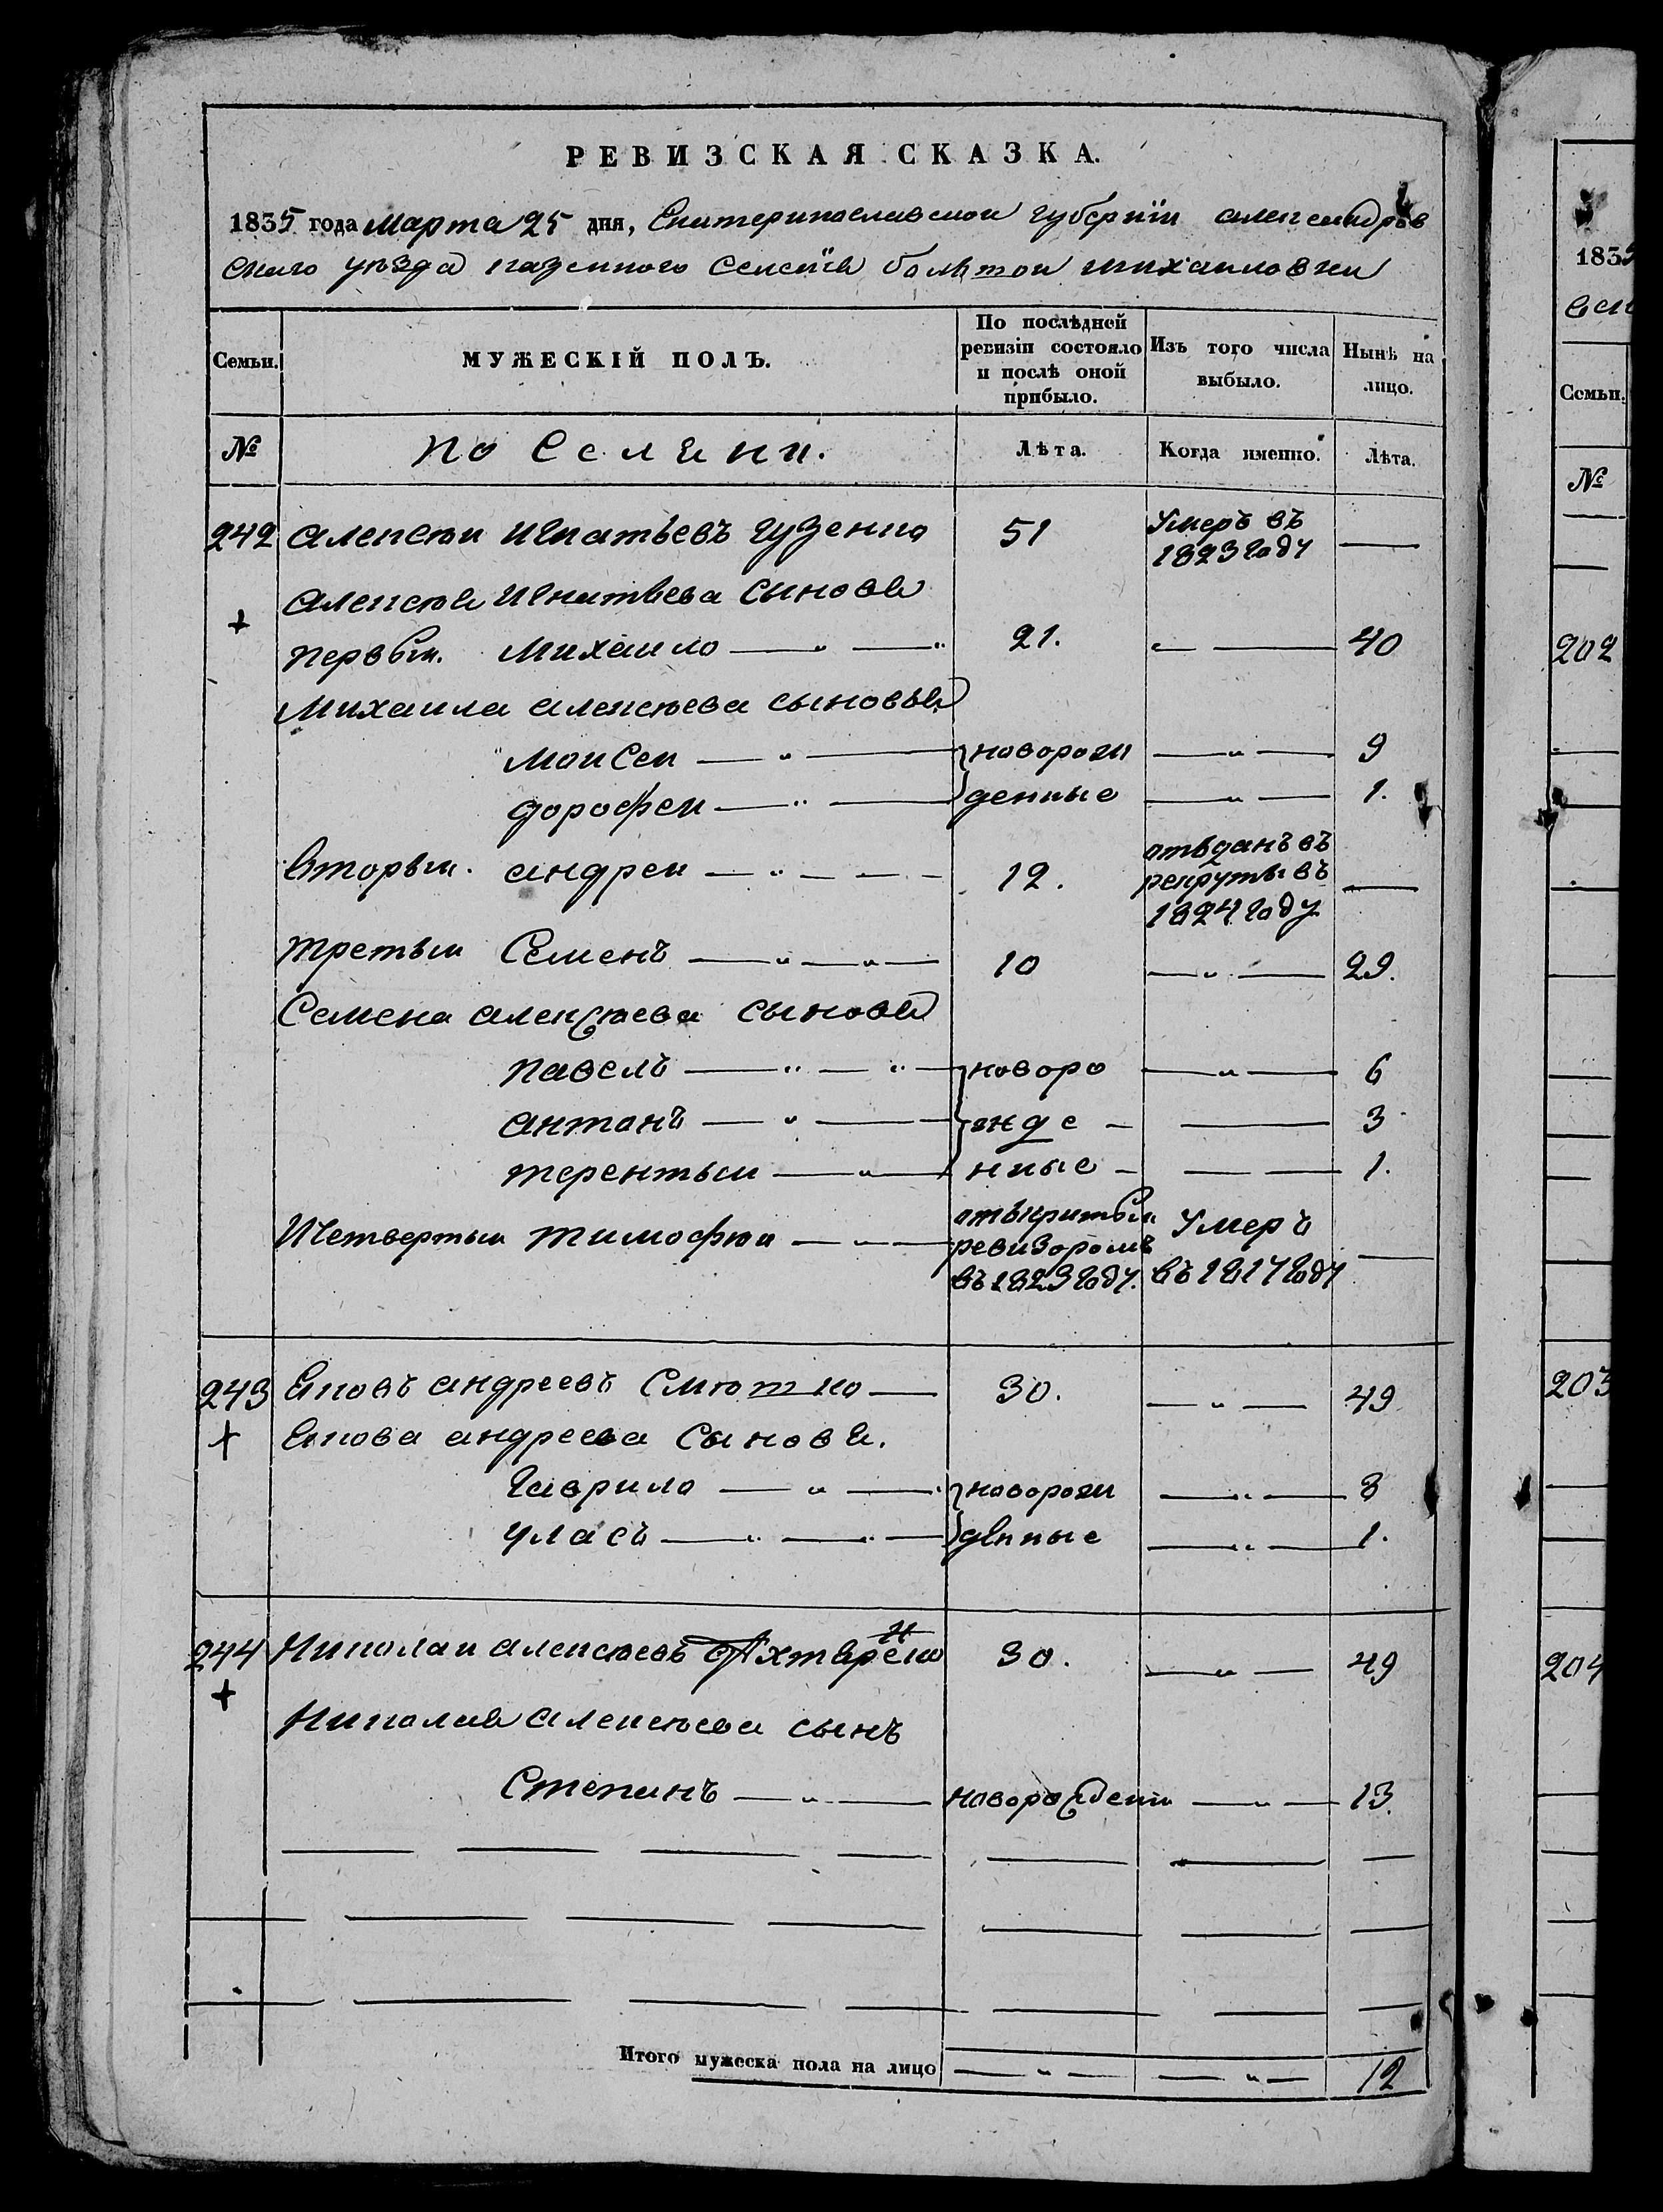 РЕВИЗСКАЯ СКАЗКА.
1835 года марта 25 дня, Екатеринославской губернїи александров
скаго уѣзда казенного селенїя бѣлѣтой михаиловки
Семьи. МУЖЕСКІЙ ПОЛЪ. По послѣдней ревизіи состояло и послѣ оной прибыло. Изъ того числа выбыло. Нынѣ на лицо.
№ Поселяни. Лѣта. Когда именно. Лѣта.
242 алексѣи игнатьевъ гузенко 51 Умеръ въ 1823 году —
алексѣя игнатьева сыновя
первыи. михаило — " — " 21. — 40
михаила алексѣева сыновья
моисеи — " — новорож — " — 9
дорофеи — " — денные — " — 1.
вторыи. андреи — " — 12. отъданъ въ рекруты въ 1824 году —
третьи Семенъ — " — " — 10 — " — 29.
Семена алексѣева сыновя
павелъ — " — " — новоро — " — 6
антонъ — " — жде — — 3
терентьи — " — нные — — 1.
Четвертыи тимофѣи — " — отькритыи ревизоромъ въ 1823 году. Умеръ въ 1817 году —
243 яковъ андреевъ Смѣтко — 30. — " — 49
якова андреева сынов я.
гаврило — " — новорож — " — 8
уласъ — " — " — денные — " — 1.
244 Николаи алексѣевъ Ахтирско 30. — " — 49
николая алексѣева сынъ
Степанъ — " — новорожден — " — 13.
Итого мужеска пола на лицо — " — — " — 12
1835
Семьи.
№
202
203
204